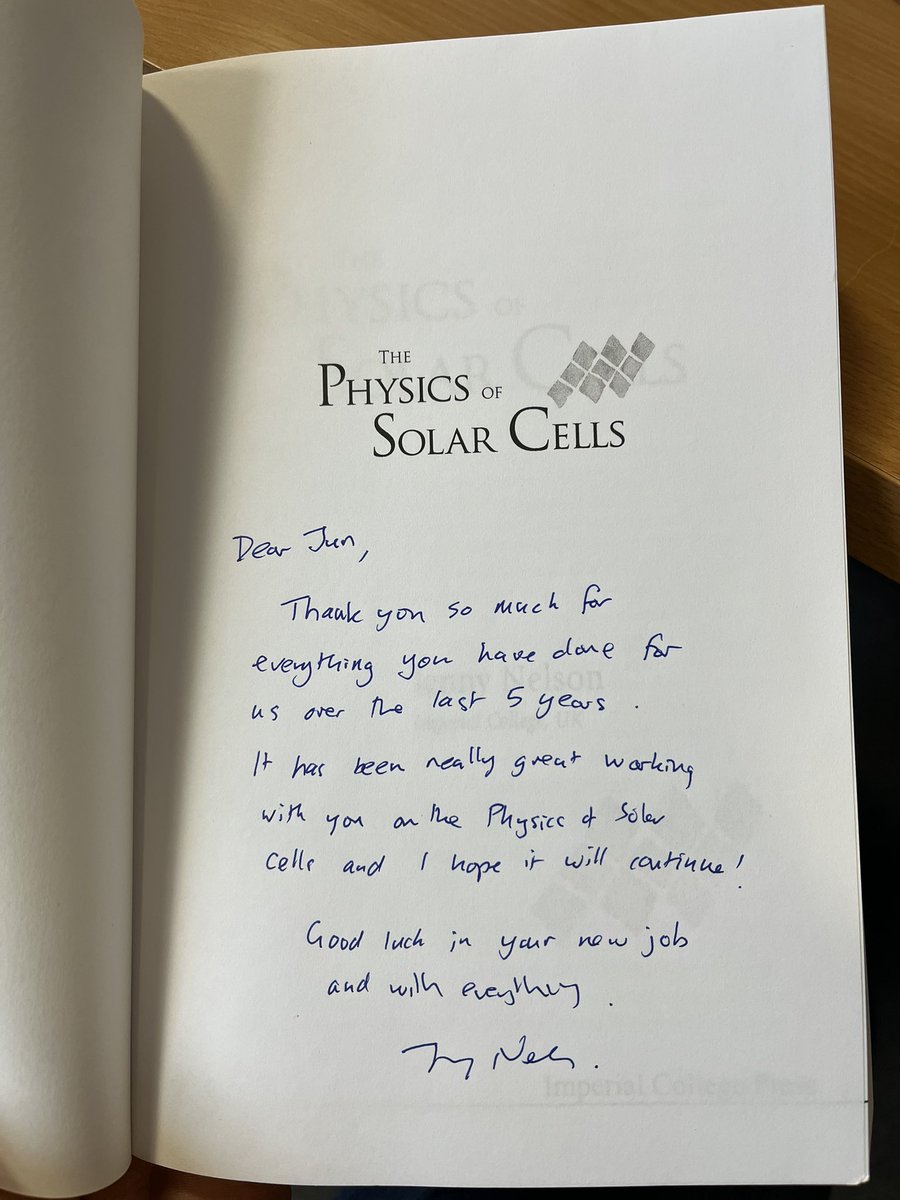 THE
PHYSICS OF
SOLAR CELLS
Dear Jun,
Thank you so much for
everything you have done for
us over the last 5 years.
It has been really great working
with you on the Physics of Solar
Cells and I hope it will continue!
Good luck in your new job
and with everything.
Jenny Nelson
Imperial College, UK
Jenny Nelson.
Imperial College Press